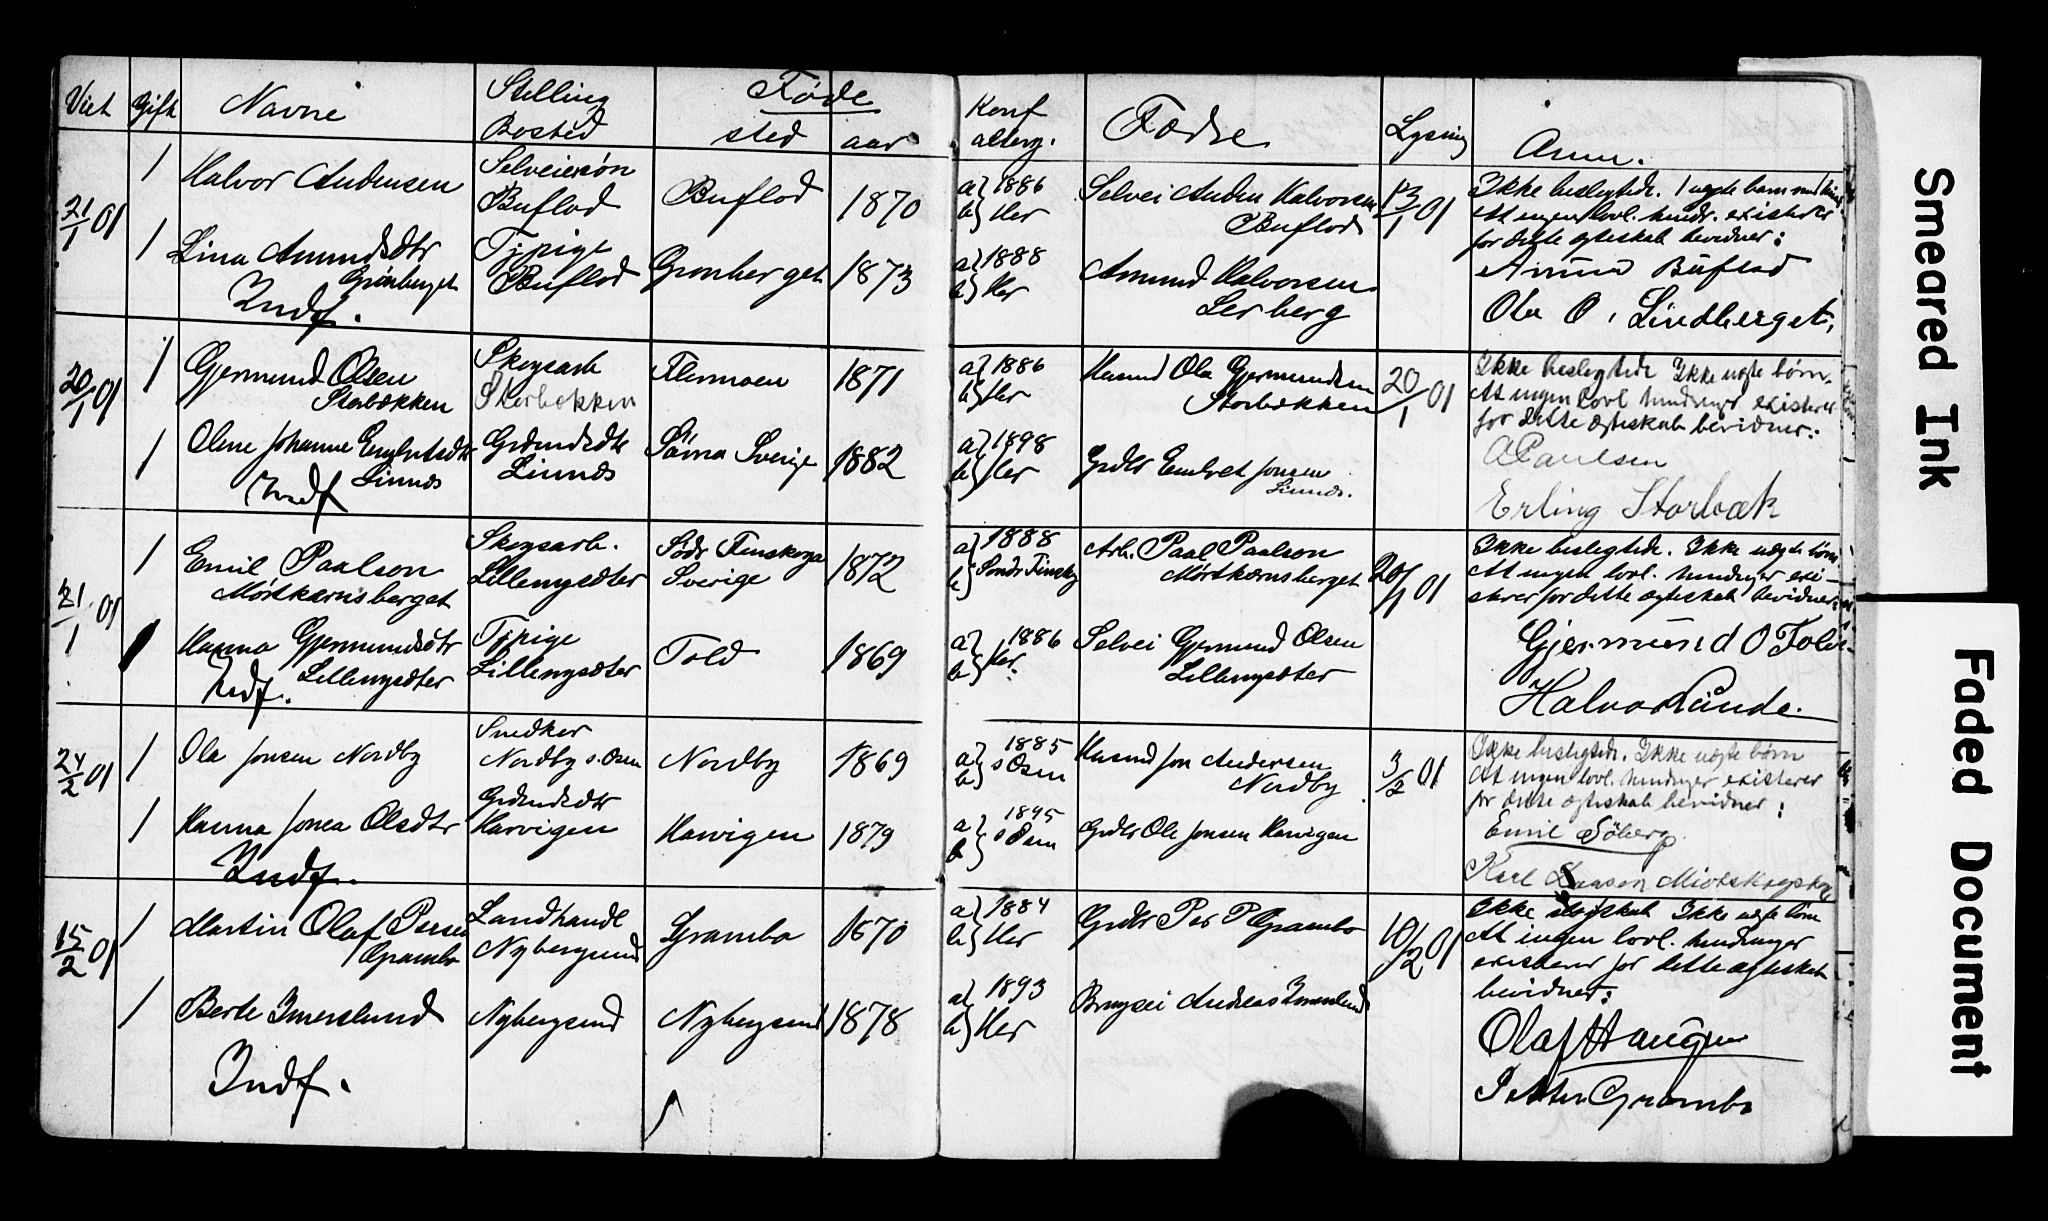 Viet Gift Navne Stilling Bosted Føde sted aar Konf alterg. Fædre Lysning Anm.
21/1 01
1 Halvor Andersen
Selveiersøn
Buflod
Buflod
1870
a) 1886
b) Her
Selvei Anders Halvorsen
Buflod
13/1 01
Ikke beslegtede. 1 uegte barn
At ingen lovl. hindr. existerer
for dette ægteskab bevidner:
Buflod
Ola O. Lindberget.
1 Lina Amundsdtr
Grønberget
Indf.
Tjpige
Buflod
Grønberget
1873
a) 1888
b) Her
Amund Halvorsen
Lerberg
20/1 01
1 Gjermund Olsen
Storbækken
Skogsarb
Storbækken
Flermoen
1871
a) 1886
b) Her
Husmd Ola Gjermundsen
Storbækken
20/1 01
Ikke beslegtede Ikke uegte børn.
At ingen lovl hindringer existerer
for dette ægteskab bevidner:
A Paulsen
Erling Storbæk
1 Oline Johanne Embretsdtr
Linnes
Indf
Grdmdsdtr
Linnes
Särna Sverige
1882
a) 1898
b) Her
Grdbr Embret Jonsen
Linnes.
21/1 01
1 Emil Paalson
Mørtkærnsberget
Skogsarb.
Lillenysæter
Södr Finskoga
Sverige
1872
a) 1888
b) Söndr Finskog
Arb. Paal Paalson
Mörtkærnsberget
20/1 01
Ikke beslegtede. Ikke uegte børn
At ingen lovl. hindringer exi-
sterer for dette ægteskab bevidner:
Gjermund O
Halvor Runde.
1 Hanna Gjermundsdtr
Lillenysæter
Indf.
Tjpige
Lillenysæter
Told
1869
a) 1886
b) Her.
Selvei Gjermund Olsen
Lillenysæter
24/2 01
1 Ola Jonsen Nordby
Snedker
Nordby s. Osen
Nordby
1869
a) 1885
b) s Osen
Husmd Jon Andersen
Nordby
3/2 01
Ikke beslegtede. Ikke uegte børn
At ingen lovl. hindringer existerer
for dette ægteskab bevidner:
Emil Söberg
Karl
1 Hanna Jonea Olsdtr
Indf.
Grdmdsdtr
Harvigen
Harvigen
1879
a) 1895
b) s Osen
Grdbr Ole Jonsen Harvigen
15/2 01
1 Martin Olaf Persen
Grambo
Landhandl
Nybergsund
Grambo
1870
a) 1884
b) Her
Grdbr Per P Grambo
10/2 01
Ikke slegtskab Ikke uegte børn
At ingen lovl. hindringer
existerer for dette ægteskab
bevidner:
Olaf Haugen
Petter Grambo
1 Berte Imerslund
Indf.
Nybergsund
Nybergsund
1878
a) 1893
b) Her
Brugsei Andreas Imerslund
Smeared Ink
Faded Document